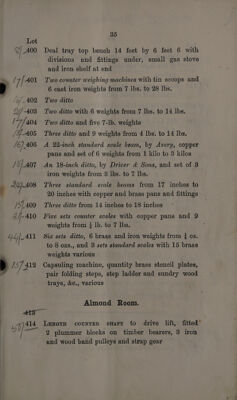 35
Lot
400 Deal tray top bench 14 feet by 6 feet 6 with
divisions and fittings under, small gas stove
and iron shelf at end
401 Two counter weighing machines with tin scoops and
6 cast iron weights from 7 lbs. to 28 lbs.
402 Two ditto
403 Two ditto with 6 weights from 7 lbs. to 14 lbs.
404 Two ditto and five 7-lb. weights
405 Three ditto and 9 weights from 4 lbs. to 14 lbs.
406 A 22-inch standard scale beam, by Avery, copper
pans and set of 6 weights from 1 kilo to 3 kilos
407 An 18-inch ditto, by Driver & Sons, and set of 3
iron weights from 3 lbs. to 7 lbs.
408 Three standard scale beams from 17 inches to
20 inches with copper and brass pans and fittings
409 Three ditto from 14 inches to 18 inches
410 Five sets counter scales with copper pans and 9
weights from ½ lb. to 7 lbs.
411 Six sets ditto, 6 brass and iron weights from ½ oz.
to 8 ozs., and 3 sets standard scales with 15 brass
weights various
412 Capsuling machine, quantity brass stencil plates,
pair folding steps, step ladder and sundry wood
trays, &c., various
Almond Room.
413
414 LENGTH COUNTER SHAFT to drive lift, fitted
2 plummer blocks on timber bearers, 3 iron
and wood band pulleys and strap gear